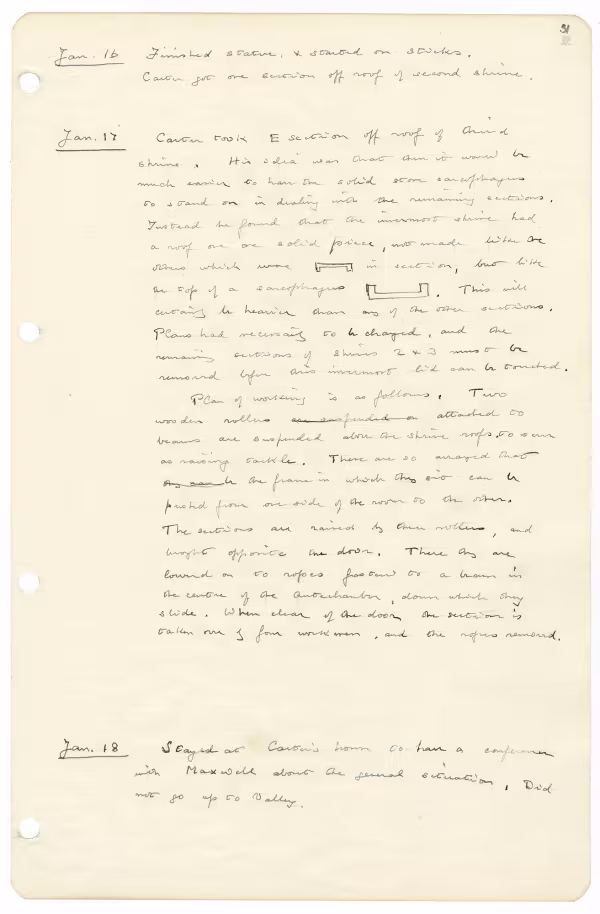 31
Jan. 16 Finished statue, & started on sticks.
Carter got one section off roof of second shrine.
Jan. 17 Carter took E section off roof of third
shrine. His idea was that then it would be
much easier to have the solid stone sarcophagus
to stand on in dealing with the remaining sections.
Instead he found that the innermost shrine had
a roof one solid piece, not made like the
others which were in section, but like
the top of a sarcophagus . This will
certainly be heavier than any of the other sections.
Plans had necessarily to be changed, and the
remaining sections of shrines 2 & 3 must be
removed before this innermost lid can be touched.
Plan of working is as follows. Two
wooden rollers are suspended on attached to
beams are suspended above the shrine roofs, to serve
as raising tackle. These are so arranged that
they can be the frame in which they sit can be
pushed from one side of the room to the other.
The sections are raised by these rollers, and
brought opposite the door. There they are
lowered on to ropes fastened to a beam in
the centre of the Antechamber, down which they
slide. When clear of the door the section is
taken over by four workmen, and the ropes removed.
Jan. 18 Stayed at Carter's house to have a conference
with Maxwell about the general situation. Did
not go up to Valley.